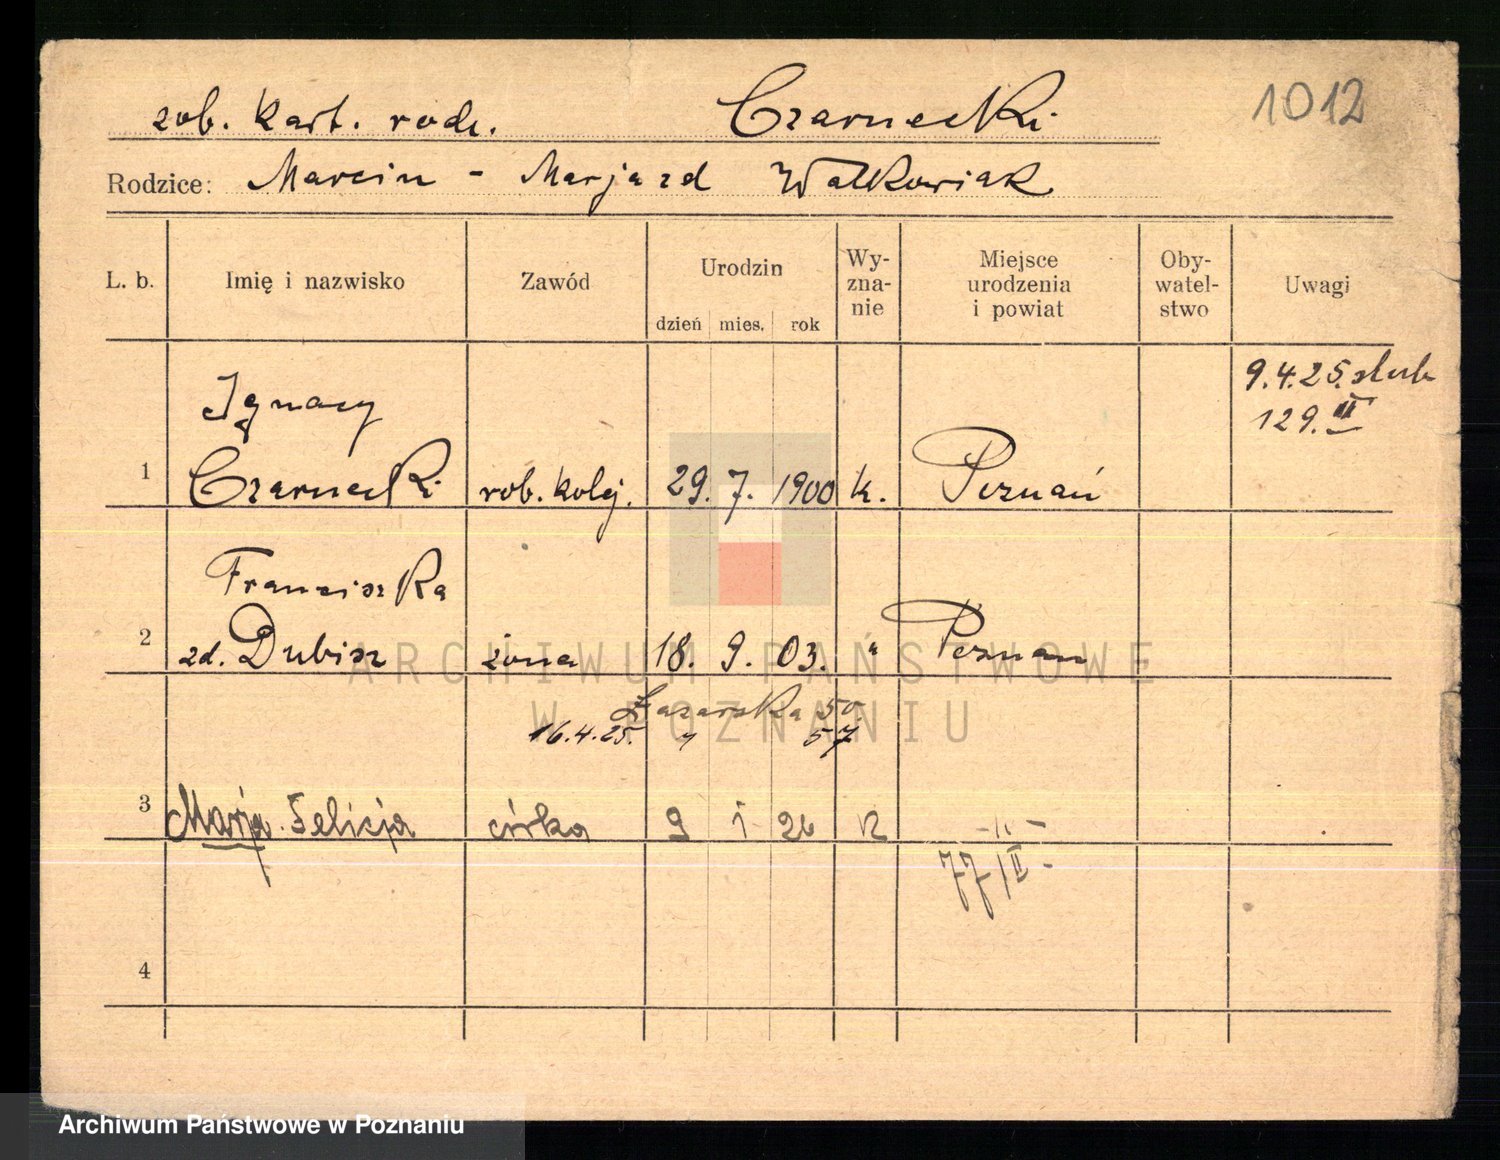 zob. kart. rodz. Czarnecki 1012
Rodzice: Marcin - Marja zd Walkowiak
L. b. Imię i nazwisko Zawód Urodzin dzień mies. rok Wyznanie Miejsce urodzenia i powiat Obywatelstwo Uwagi
9.4.25. slub
129.II
Ignacy
1 Czarnecki rob. kolej. 29. 7. 1900 k. Poznań
Franciszka
2 zd. Dubisz żona 18. 9. 03. " Poznan
Łazarska 50
16.4.25. " 57
3 Marja Felicja córka 9 1 26 k -"-
77/II-
4
ARCHIWUM PAŃSTWOWE
W POZNANIU
Archiwum Państwowe w Poznaniu